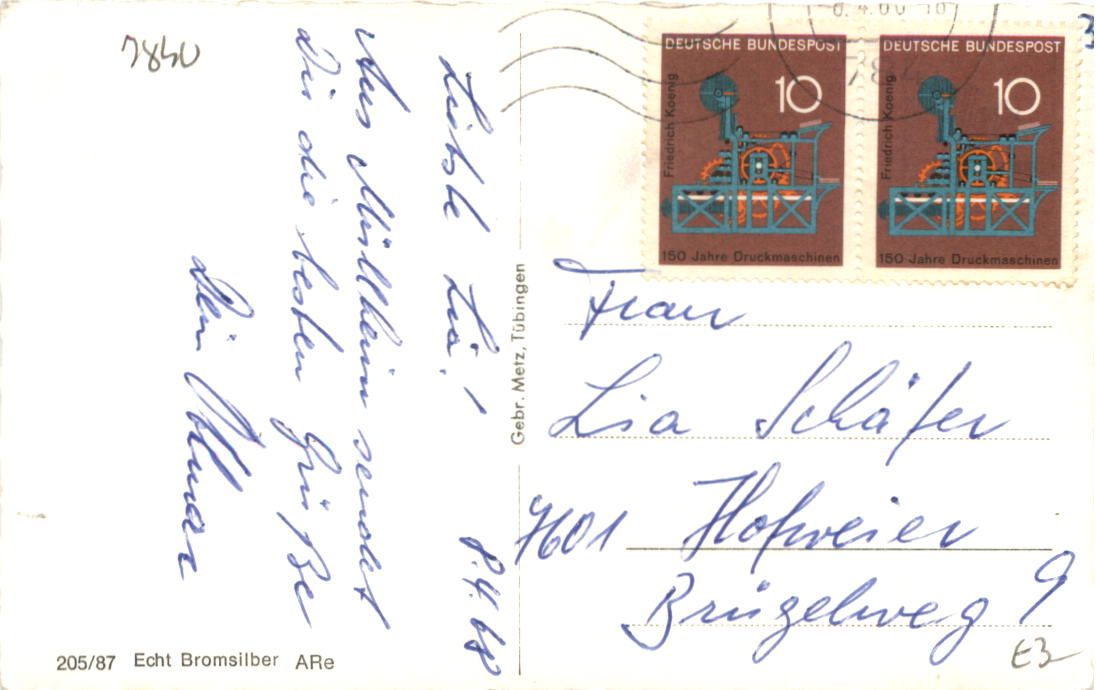 7840
Liebste Lia!
8.4.68
Aus Müllheim sendet
Dir die besten Grüße
Dein Otmar
205/87 Echt Bromsilber ARe
Gebr. Metz, Tübingen
784
DEUTSCHE BUNDESPOST
10
Friedrich Koenig
150 Jahre Druckmaschinen
DEUTSCHE BUNDESPOST
10
Friedrich Koenig
150 Jahre Druckmaschinen
Frau
Lia Schäfer
7601 Hofweier
Brügelweg 9